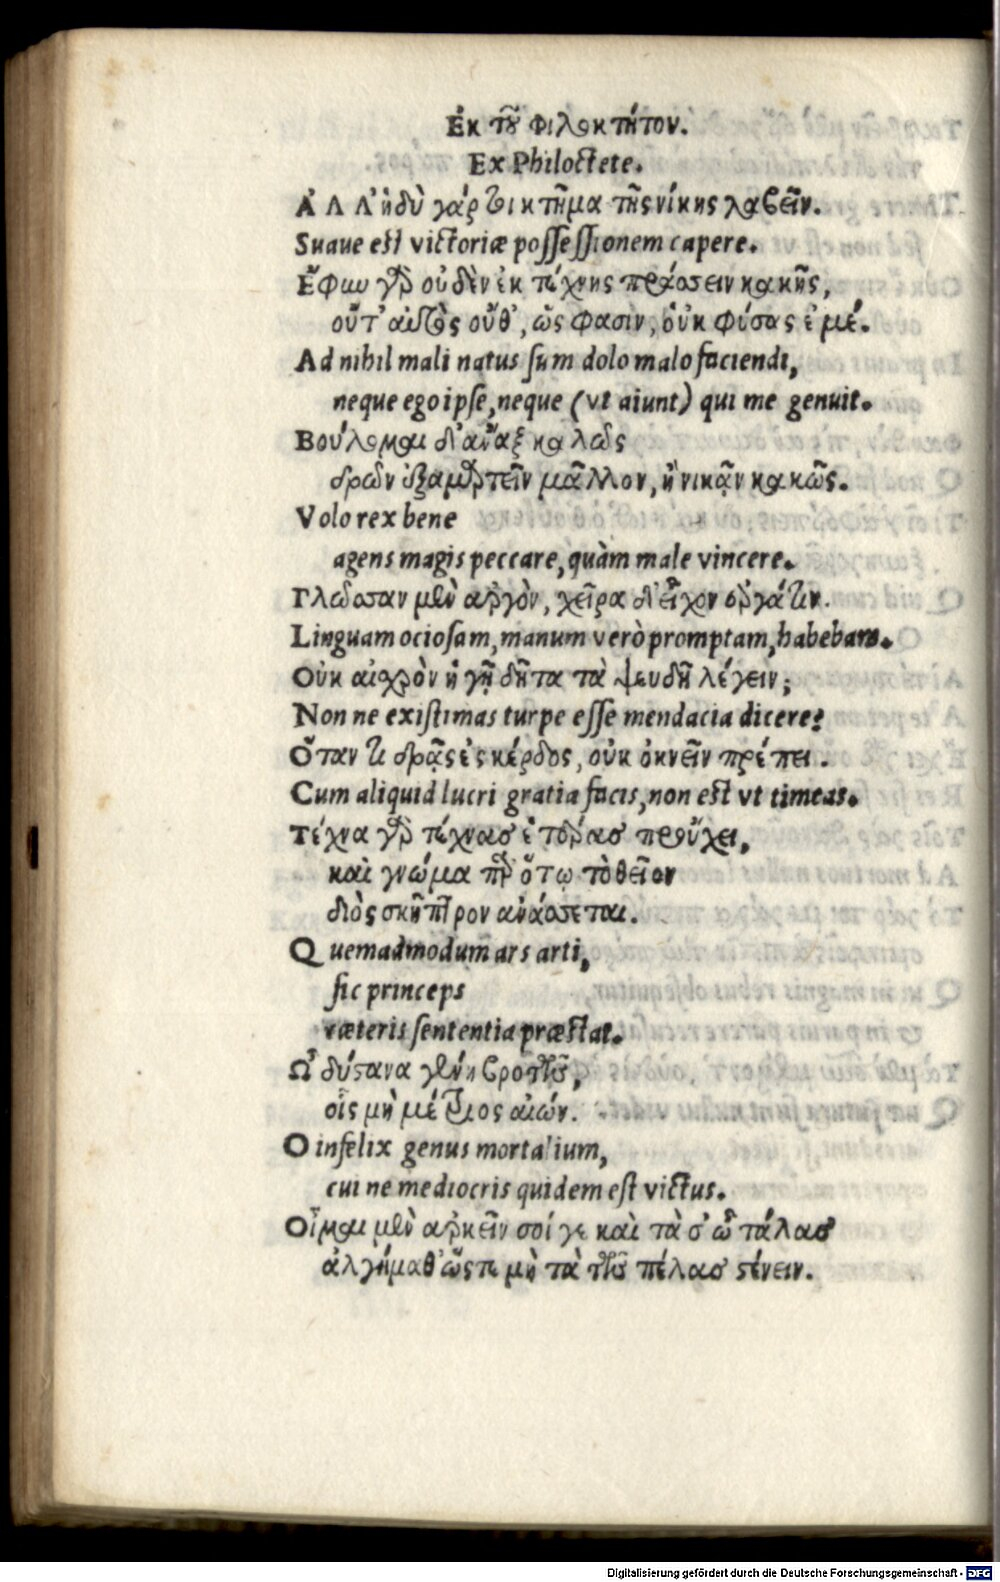 Ἐκ τοῦ Φιλοκτήτου.
Ex Philoctete.
ἈΛΛ' ἡδὺ γάρ τι κτῆμα τῆς νίκης λαβεῖν.
Suaue est victoriæ possessionem capere.
Ἔφυν γὰρ οὐδὲν ἐκ τέχνης πράσσειν κακῆς,
οὔτ' αὐτὸς οὔθ', ὥς φασιν, οὑκφύσας ἐμέ.
Ad nihil mali natus sum dolo malo faciendi,
neque ego ipse, neque (vt aiunt) qui me genuit.
Βούλομαι δ' ἄναξ καλῶς
δρῶν ἐξαμαρτεῖν μᾶλλον, ἢ νικᾷν κακῶς.
Volo rex bene
agens magis peccare, quàm male vincere.
Γλῶσσαν μὲν ἀργὸν, χεῖρα δ' εἶχον ἐργάτιν.
Linguam ociosam, manum verò promptam, habebam.
Οὐκ αἰσχρὸν ἡγῇ δῆτα τὰ ψευδῆ λέγειν;
Non ne existimas turpe esse mendacia dicere?
Ὅταν τι δρᾷς ἐς κέρδος, οὐκ ὀκνεῖν πρέπει.
Cum aliquid lucri gratia facis, non est vt timeas.
Τέχνα γὰρ τέχνας ἑτέρας προὔχει,
καὶ γνώμα παρ' ὅτῳ τὸ θεῖον
διὸς σκῆπτρον ἀνάσσεται.
Quemadmodum ars arti,
sic princeps
cæteris sententia præstat.
Ὦ δύστανα γένη βροτῶν,
οἷς μὴ μέτριος αἰών.
O infelix genus mortalium,
cui ne mediocris quidem est victus.
Οἶμαι μὲν ἀρκεῖν σοί γε καὶ τὰ σ' ὦ τάλας
ἀλγήμαθ' ὥστε μὴ τὰ τῶν πέλας στένειν.
Digitalisierung gefördert durch die Deutsche Forschungsgemeinschaft - DFG